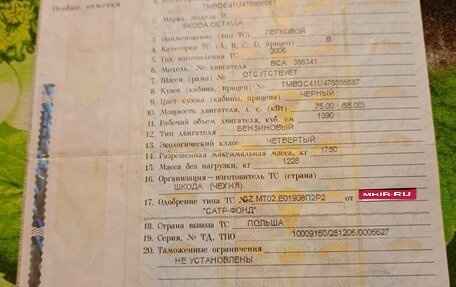 Особые отметки
TMBDC41U476856687
2. Марка, модель ТС
SKODA OCTAVIA
3. Наименование (тип ТС) ЛЕГКОВОЙ
4. Категория ТС (A, B, C, D, прицеп) B
5. Год изготовления ТС 2006
6. Модель, № двигателя BCA 386341
7. Шасси (рама) № ОТСУТСТВУЕТ
8. Кузов (кабина, прицеп) № TMBDC41U476856687
9. Цвет кузова (кабины, прицепа) ЧЕРНЫЙ
10. Мощность двигателя, л. с. (кВт) 75,00 (55,00)
11. Рабочий объем двигателя, куб. см 1390
12. Тип двигателя БЕНЗИНОВЫЙ
13. Экологический класс ЧЕТВЕРТЫЙ
14. Разрешенная максимальная масса, кг 1750
15. Масса без нагрузки, кг 1228
16. Организация—изготовитель ТС (страна)
ШКОДА (ЧЕХИЯ)
17. Одобрение типа ТС № CZ.MT02.E01908П2Р2 от MKIR-RU
"САТР-ФОНД"
18. Страна вывоза ТС ПОЛЬША
19. Серия, № ТД, ТПО 10009150/281205/0005527
20. Таможенные ограничения
НЕ УСТАНОВЛЕНЫ